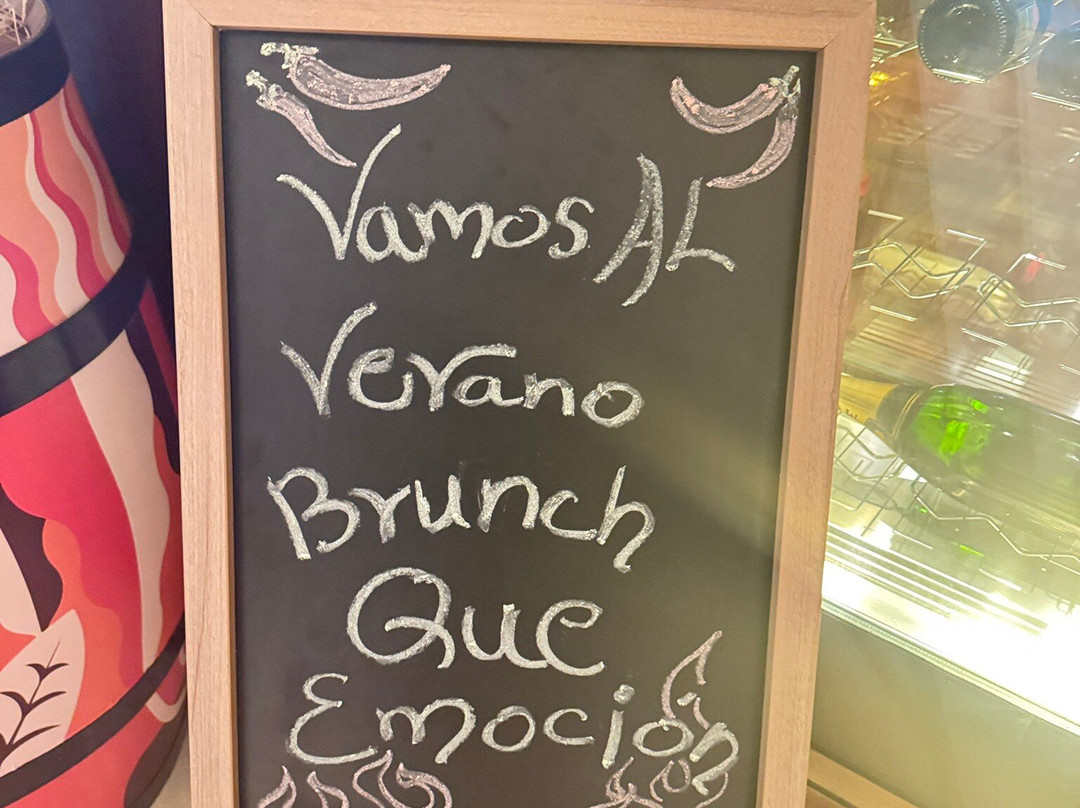 Vamos AL
Verano
Brunch
Que
Emoción